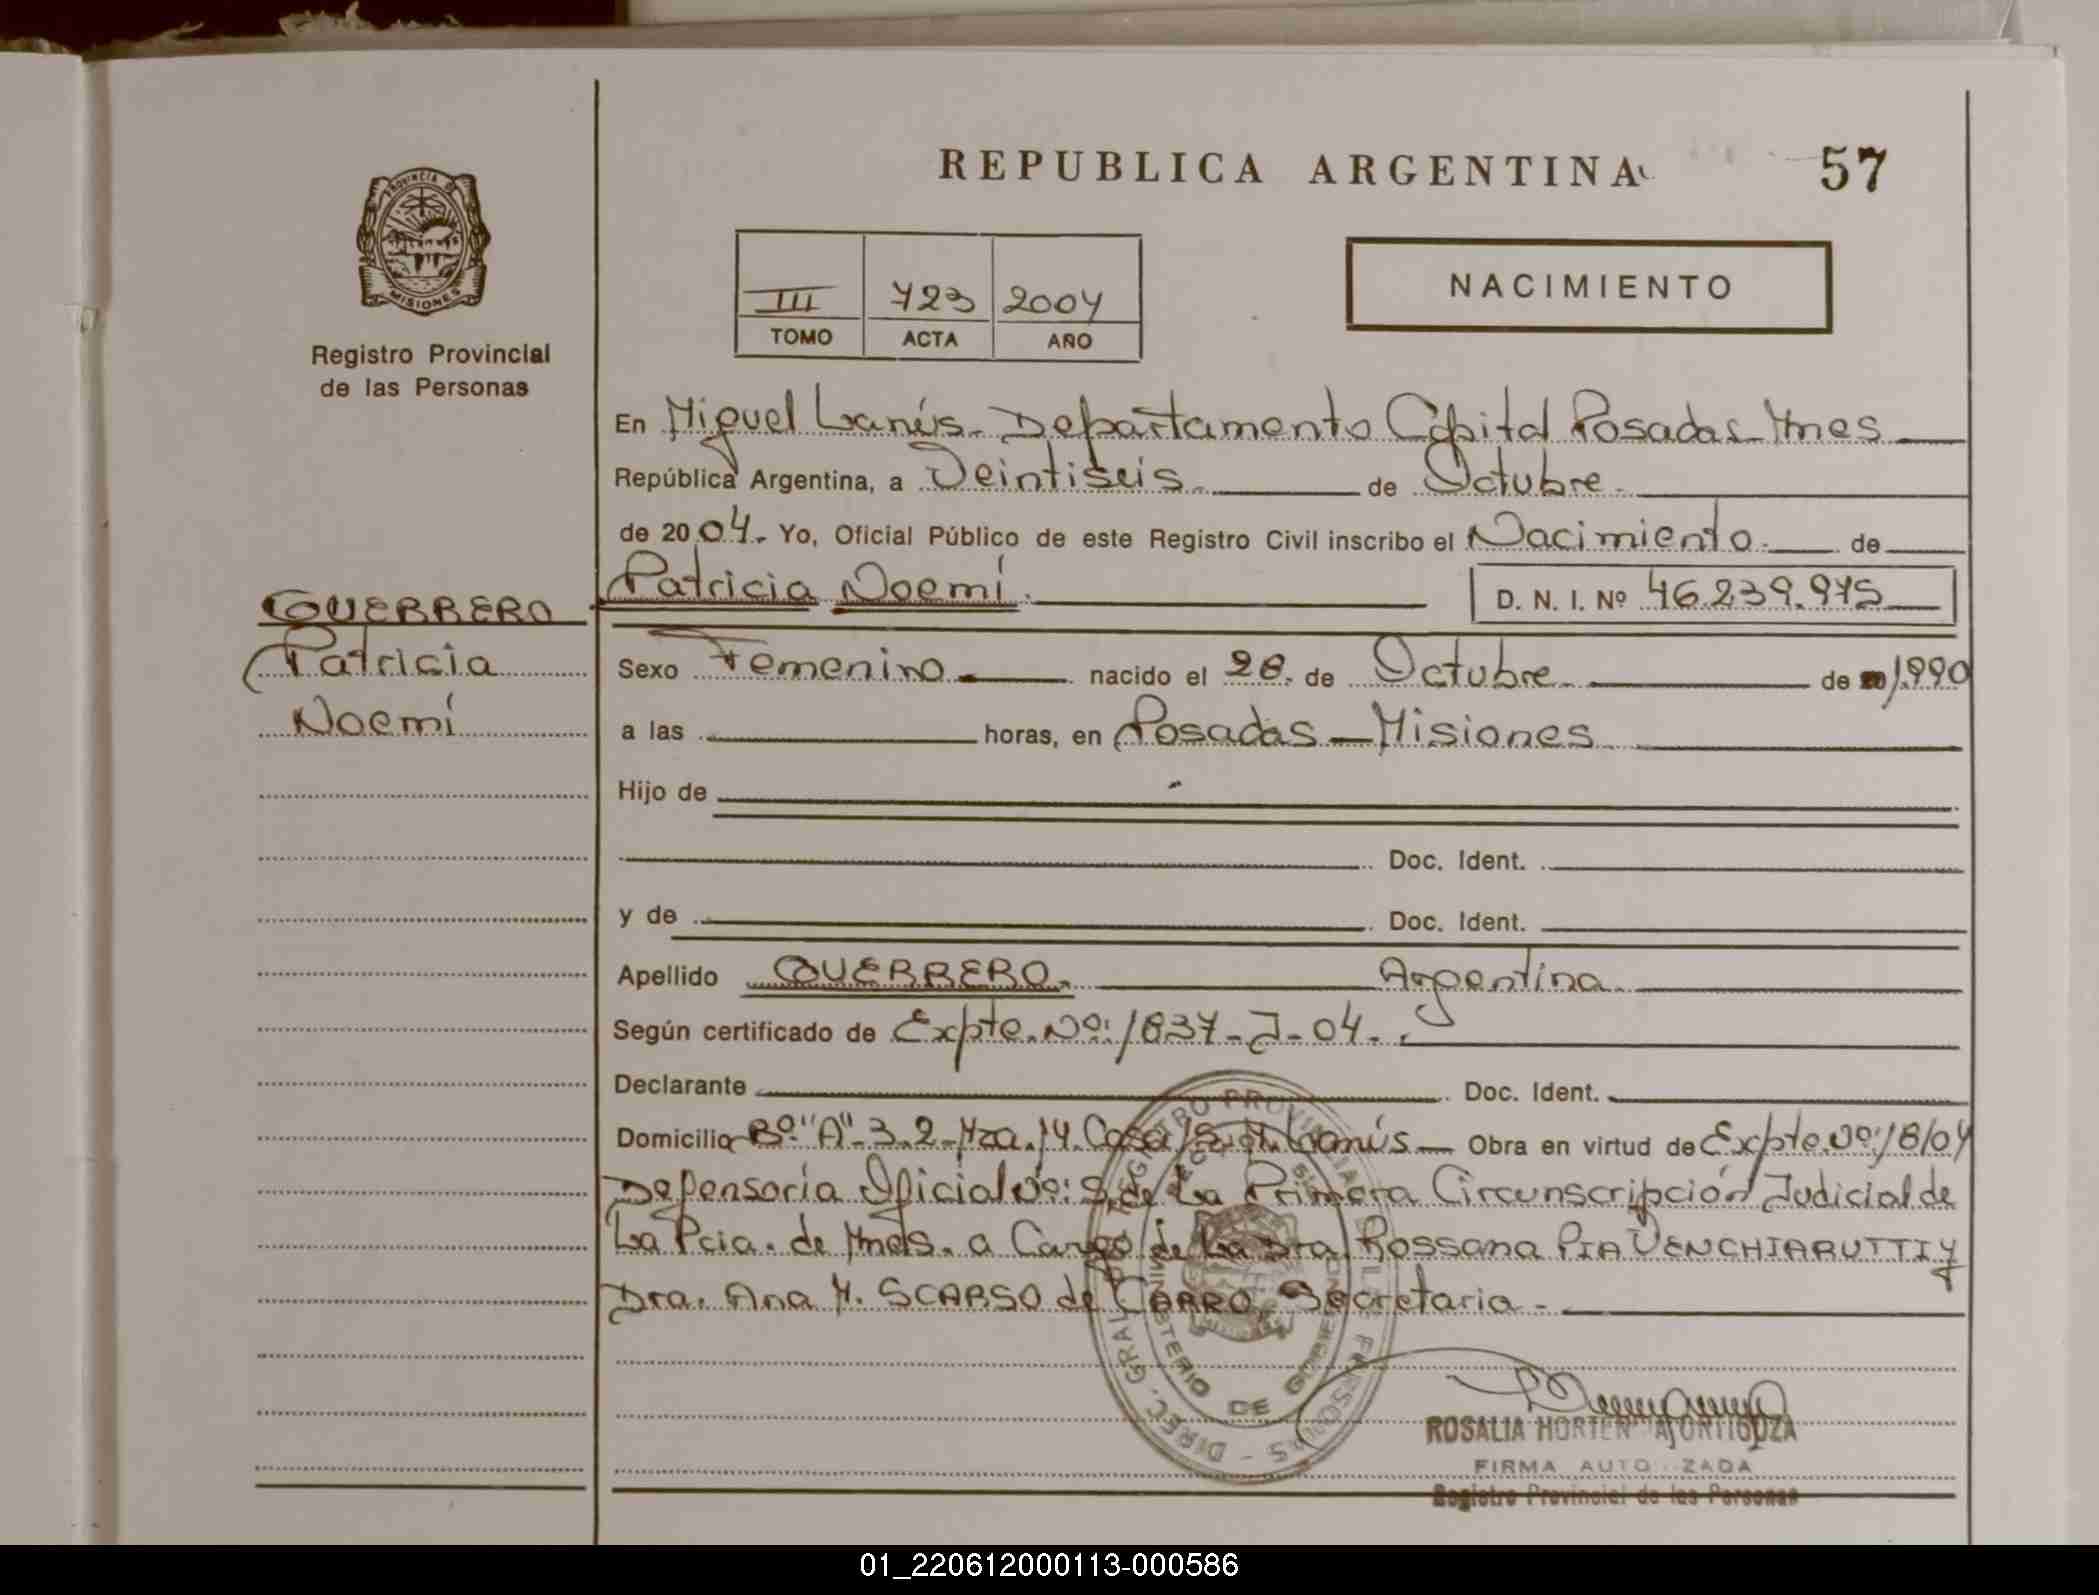 REPUBLICA ARGENTINA
57
PROVINCIA DE
MISIONES
Registro Provincial
de las Personas
III 723 2004
TOMO ACTA AÑO
NACIMIENTO
En Miguel Lanús - Departamento Capital Posadas - Mnes
República Argentina, a Veintiseis de Octubre
de 2004. Yo, Oficial Público de este Registro Civil inscribo el Nacimiento de
Patricia Noemí. D. N. I. Nº 46.239.975
GUERRERO
Patricia
Noemí
Sexo Femenino nacido el 28 de Octubre de 1990
a las horas, en Posadas - Misiones
Hijo de
Doc. Ident.
y de Doc. Ident.
Apellido GUERRERO. Argentina
Según certificado de Expte. Nº: 1837-J-04.
Declarante Doc. Ident.
Domicilio Bº "A" 3.2 - Mza. 14. Casa M. Lanús - Obra en virtud de Expte. Nº: 18/04
Defensoría Oficial Nº: de La Primera Circunscripción Judicial de
La Pcia. de Mnes. a Cargo de La Dra. Rossana PIA VENCHIARUTTI y
Dra. Ana M. SCARSO de CARRO, Secretaria -
DIREC. GRAL. REGISTRO PROVINCIAL DE PERSONAS
MINISTERIO DE GOBIERNO
ROSALIA HORTENCIA ORTIGOZA
FIRMA AUTORIZADA
Registro Provincial de las Personas
01_220612000113-000586